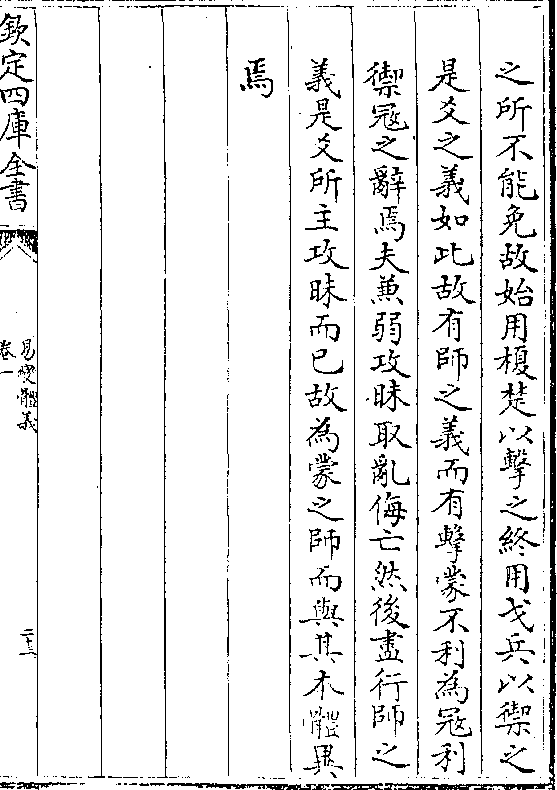 之所不能免故始用榎楚以擊之終用戈兵以禦之
是爻之義如此故有師之義而有擊蒙不利為冦利
禦冦之辭焉夫兼弱攻昧取亂侮亡然後盡行師之
義是爻所主攻昧而已故為蒙之師而與其本體異
焉
欽定四庫全書
易變體義
卷一
二十三